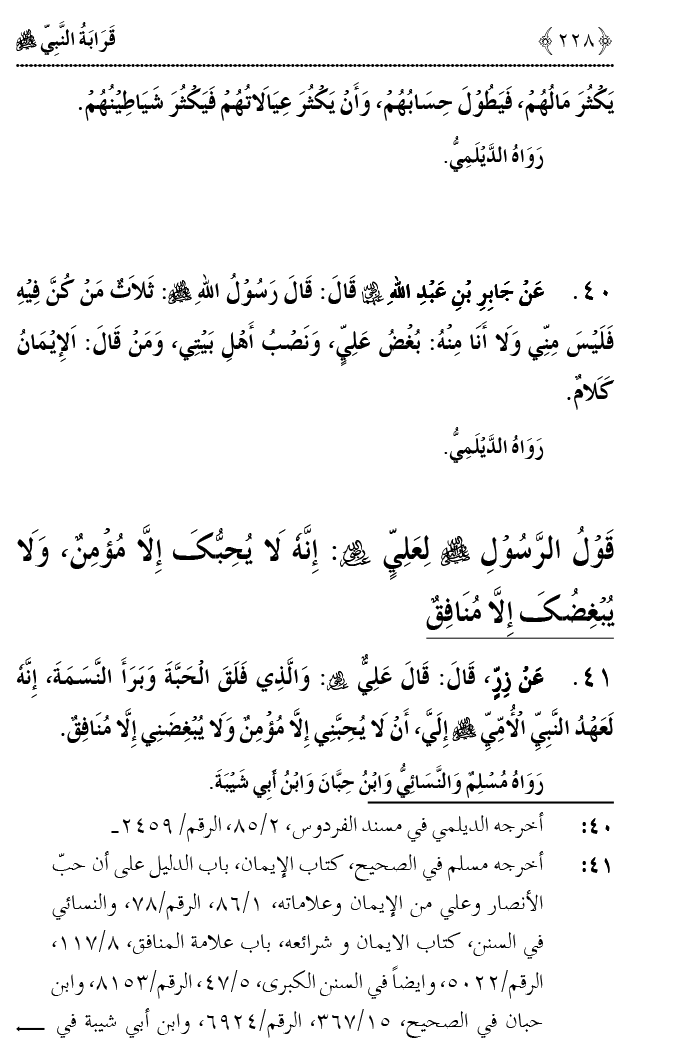 ﴿٢٢٨﴾ قَرَابَةُ النَّبِيِّ ﷺ
يَكْثُرَ مَالُهُمْ، فَيَطُوْلَ حِسَابُهُمْ، وَأَنْ يَكْثُرَ عِيَالَاتُهُمْ فَيَكْثُرَ شَيَاطِيْنُهُمْ.
رَوَاهُ الدَّيْلَمِيُّ.
٤٠. عَنْ جَابِرِ بْنِ عَبْدِ اللهِ قَالَ: قَالَ رَسُوْلُ اللهِ ﷺ: ثَلَاثٌ مَنْ كُنَّ فِيْهِ
فَلَيْسَ مِنِّي وَلَا أَنَا مِنْهُ: بُغْضُ عَلِيٍّ، وَنَصْبُ أَهْلِ بَيْتِي، وَمَنْ قَالَ: اَلإِيْمَانُ
كَلَامٌ.
رَوَاهُ الدَّيْلَمِيُّ.
قَوْلُ الرَّسُوْلِ ﷺ لِعَلِيٍّ: إِنَّهُ لَا يُحِبُّكَ إِلَّا مُؤْمِنٌ، وَلَا
يُبْغِضُكَ إِلَّا مُنَافِقٌ
٤١. عَنْ زِرٍّ، قَالَ: قَالَ عَلِيٌّ: وَالَّذِي فَلَقَ الْحَبَّةَ وَبَرَأَ النَّسَمَةَ، إِنَّهُ
لَعَهْدُ النَّبِيِّ الْأُمِّيِّ ﷺ إِلَيَّ، أَنْ لَا يُحِبَّنِي إِلَّا مُؤْمِنٌ وَلَا يُبْغِضَنِي إِلَّا مُنَافِقٌ.
رَوَاهُ مُسْلِمٌ وَالنَّسَائِيُّ وَابْنُ حِبَّانَ وَابْنُ أَبِي شَيْبَةَ.
٤٠: أخرجه الديلمي في مسند الفردوس، ٨٥/٢، الرقم/ ٢٤٥٩ـ
٤١: أخرجه مسلم في الصحيح، كتاب الإيمان، باب الدليل على أن حبّ
الأنصار وعلي من الإيمان وعلاماته، ٨٦/١، الرقم/٧٨، والنسائي
في السنن، كتاب الايمان و شرائعه، باب علامة المنافق، ١١٧/٨،
الرقم/٥٠٢٢، وايضاً في السنن الكبرى، ٤٧/٥، الرقم/٨١٥٣، وابن
حبان في الصحيح، ٣٦٧/١٥، الرقم/٦٩٢٤، وابن أبي شيبة في